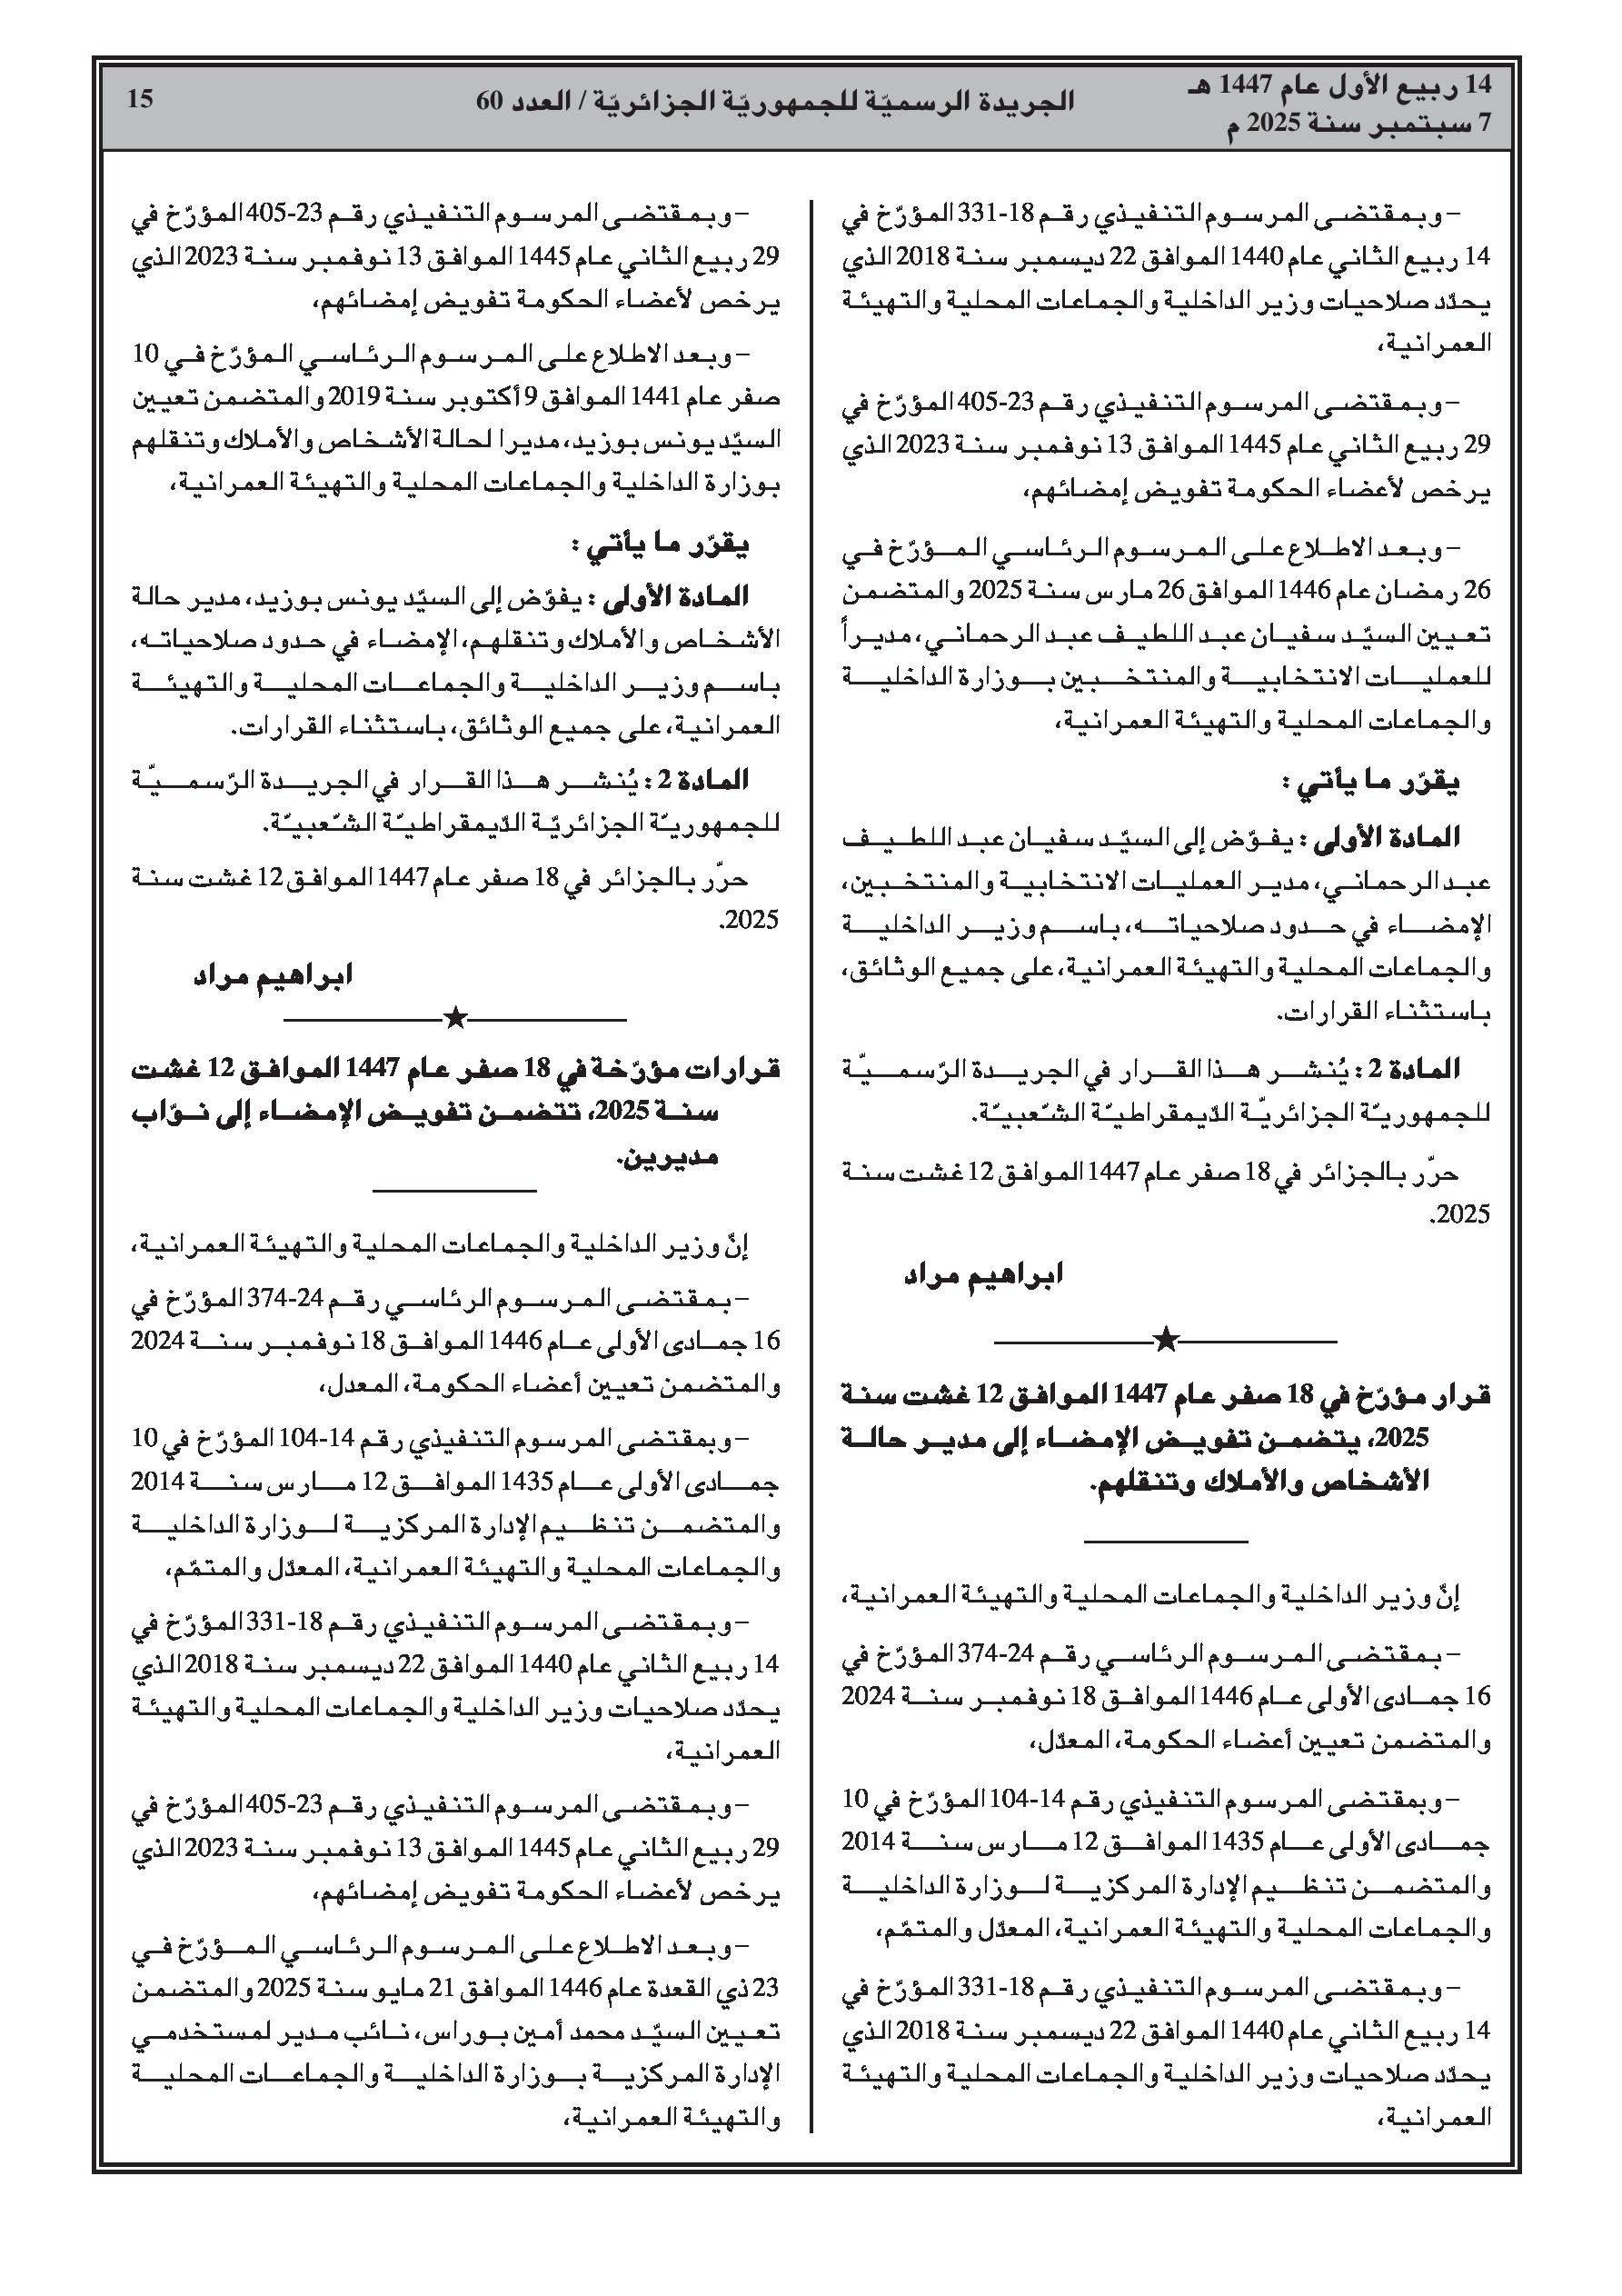 14 ربيع الأول عام 1447 هـ
7 سبتمبر سنة 2025 م
الجريدة الرسميّة للجمهوريّة الجزائريّة / العدد 60
15
– وبمقتضى المرسوم التنفيذي رقم 18-331 المؤرّخ في
14 ربيع الثاني عام 1440 الموافق 22 ديسمبر سنة 2018 الذي
يحدّد صلاحيات وزير الداخلية والجماعات المحلية والتهيئة
العمرانية،
– وبمقتضى المرسوم التنفيذي رقم 23-405 المؤرّخ في
29 ربيع الثاني عام 1445 الموافق 13 نوفمبر سنة 2023 الذي
يرخص لأعضاء الحكومة تفويض إمضائهم،
– وبعد الاطلاع على المرسوم الرئاسي المؤرّخ في
26 رمضان عام 1446 الموافق 26 مارس سنة 2025 والمتضمن
تعيين السيّد سفيان عبد اللطيف عبد الرحماني، مديراً
للعمليات الانتخابية والمنتخبين بوزارة الداخلية
والجماعات المحلية والتهيئة العمرانية،
يقرّر ما يأتي :
المادة الأولى : يفوّض إلى السيّد سفيان عبد اللطيف
عبد الرحماني، مدير العمليات الانتخابية والمنتخبين،
الإمضاء في حدود صلاحياته، باسم وزير الداخلية
والجماعات المحلية والتهيئة العمرانية، على جميع الوثائق،
باستثناء القرارات.
المادة 2 : يُنشر هذا القرار في الجريدة الرّسميّة
للجمهوريّة الجزائريّة الدّيمقراطيّة الشّعبيّة.
حرّر بالجزائر في 18 صفر عام 1447 الموافق 12 غشت سنة
2025.
ابراهيم مراد
قرار مؤرّخ في 18 صفر عام 1447 الموافق 12 غشت سنة
2025، يتضمن تفويض الإمضاء إلى مدير حالة
الأشخاص والأملاك وتنقلهم.
إنّ وزير الداخلية والجماعات المحلية والتهيئة العمرانية،
– بمقتضى المرسوم الرئاسي رقم 24-374 المؤرّخ في
16 جمادى الأولى عام 1446 الموافق 18 نوفمبر سنة 2024
والمتضمن تعيين أعضاء الحكومة، المعدّل،
– وبمقتضى المرسوم التنفيذي رقم 14-104 المؤرّخ في 10
جمادى الأولى عام 1435 الموافق 12 مارس سنة 2014
والمتضمن تنظيم الإدارة المركزية لوزارة الداخلية
والجماعات المحلية والتهيئة العمرانية، المعدّل والمتمّم،
– وبمقتضى المرسوم التنفيذي رقم 18-331 المؤرّخ في
14 ربيع الثاني عام 1440 الموافق 22 ديسمبر سنة 2018 الذي
يحدّد صلاحيات وزير الداخلية والجماعات المحلية والتهيئة
العمرانية،
– وبمقتضى المرسوم التنفيذي رقم 23-405 المؤرّخ في
29 ربيع الثاني عام 1445 الموافق 13 نوفمبر سنة 2023 الذي
يرخص لأعضاء الحكومة تفويض إمضائهم،
– وبعد الاطلاع على المرسوم الرئاسي المؤرّخ في 10
صفر عام 1441 الموافق 9 أكتوبر سنة 2019 والمتضمن تعيين
السيّد يونس بوزيد، مديرا لحالة الأشخاص والأملاك وتنقلهم
بوزارة الداخلية والجماعات المحلية والتهيئة العمرانية،
يقرّر ما يأتي :
المادة الأولى : يفوّض إلى السيّد يونس بوزيد، مدير حالة
الأشخاص والأملاك وتنقلهم، الإمضاء في حدود صلاحياته،
باسم وزير الداخلية والجماعات المحلية والتهيئة
العمرانية، على جميع الوثائق، باستثناء القرارات.
المادة 2 : يُنشر هذا القرار في الجريدة الرّسميّة
للجمهوريّة الجزائريّة الدّيمقراطيّة الشّعبيّة.
حرّر بالجزائر في 18 صفر عام 1447 الموافق 12 غشت سنة
2025.
ابراهيم مراد
قرارات مؤرّخة في 18 صفر عام 1447 الموافق 12 غشت
سنة 2025، تتضمن تفويض الإمضاء إلى نوّاب
مديرين.
إنّ وزير الداخلية والجماعات المحلية والتهيئة العمرانية،
– بمقتضى المرسوم الرئاسي رقم 24-374 المؤرّخ في
16 جمادى الأولى عام 1446 الموافق 18 نوفمبر سنة 2024
والمتضمن تعيين أعضاء الحكومة، المعدل،
– وبمقتضى المرسوم التنفيذي رقم 14-104 المؤرّخ في 10
جمادى الأولى عام 1435 الموافق 12 مارس سنة 2014
والمتضمن تنظيم الإدارة المركزية لوزارة الداخلية
والجماعات المحلية والتهيئة العمرانية، المعدّل والمتمّم،
– وبمقتضى المرسوم التنفيذي رقم 18-331 المؤرّخ في
14 ربيع الثاني عام 1440 الموافق 22 ديسمبر سنة 2018 الذي
يحدّد صلاحيات وزير الداخلية والجماعات المحلية والتهيئة
العمرانية،
– وبمقتضى المرسوم التنفيذي رقم 23-405 المؤرّخ في
29 ربيع الثاني عام 1445 الموافق 13 نوفمبر سنة 2023 الذي
يرخص لأعضاء الحكومة تفويض إمضائهم،
– وبعد الاطلاع على المرسوم الرئاسي المؤرّخ في
23 ذي القعدة عام 1446 الموافق 21 مايو سنة 2025 والمتضمن
تعيين السيّد محمد أمين بوراس، نائب مدير لمستخدمي
الإدارة المركزية بوزارة الداخلية والجماعات المحلية
والتهيئة العمرانية،